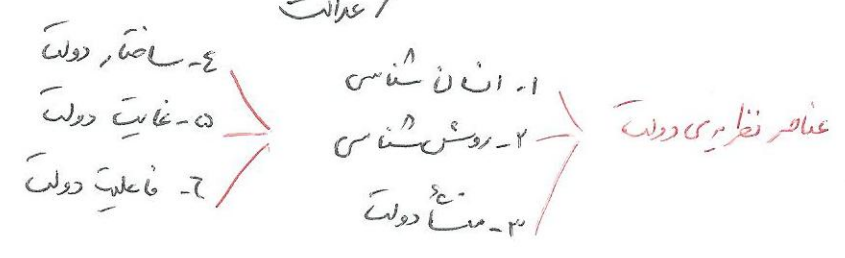 عدالت
عناصر نظریه‌ی دولت
۱- انسان شناسی
۲- روش شناسی
۳- منشأ دولت
۴- ساختار دولت
۵- غایت دولت
۶- فاعلیت دولت